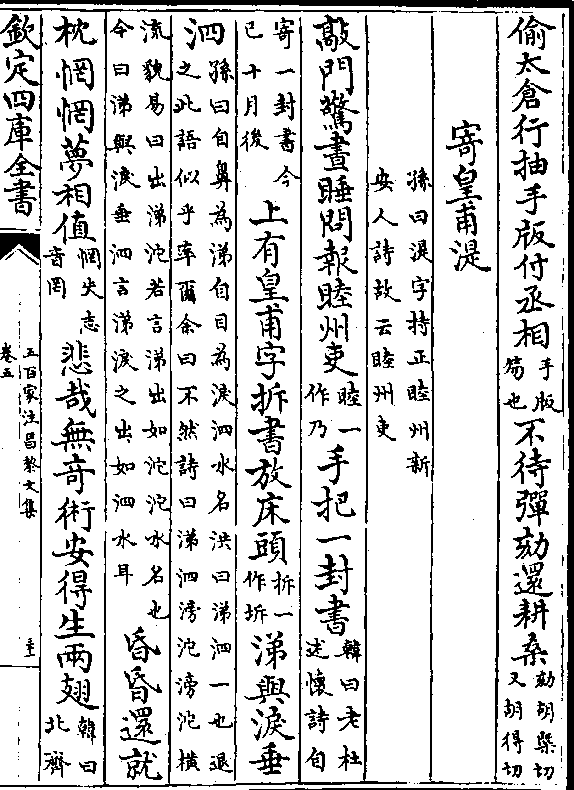 偷太倉行抽手版付丞相手版笏也不待彈劾還耕桑劾胡槩切又胡得切
寄皇甫湜
孫曰湜字持正睦州新安人詩故云睦州吏
敲門驚晝睡問報睦州吏睦一作乃手把一封書韓曰老杜述懷詩自
寄一封書今已十月後上有皇甫字拆書放床頭拆一作坼涕與淚垂
泗孫曰自鼻為涕自目為淚泗水名洪曰涕泗一也退之此語似乎率爾余曰不然詩曰涕泗滂沱滂沱橫
流貌易曰出涕沱若言涕出如沱沱水名也今曰涕與淚垂泗言涕淚之出如泗水耳昏昏還就
枕惘惘夢相值惘失志音罔悲哉無奇術安得生兩翅韓曰北齊
欽定四庫全書
五百家注昌黎文集
卷五